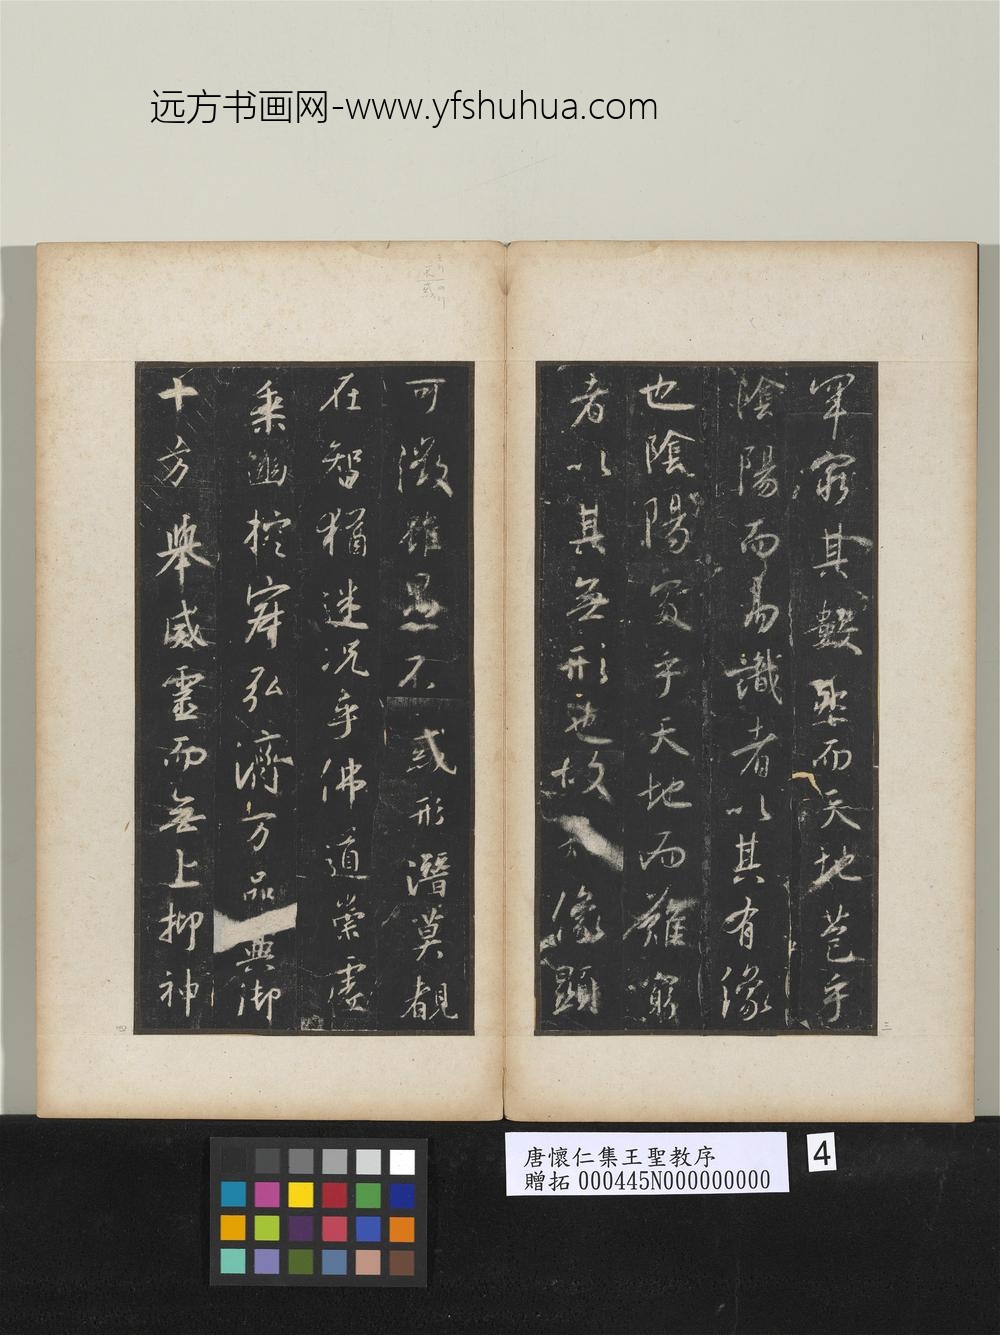 远方书画网-www.yfshuhua.com
罕窮其數然而天地苞乎
陰陽而易識者以其有像
也陰陽處乎天地而難窮
者以其無形也故像顯
可徵雖愚不惑形潛莫覩
在智猶迷况乎佛道崇虛
乘幽控寂弘濟万品典御
十方舉威靈而無上抑神
三
四
唐懷仁集王聖教序
贈拓 000445N000000000
4